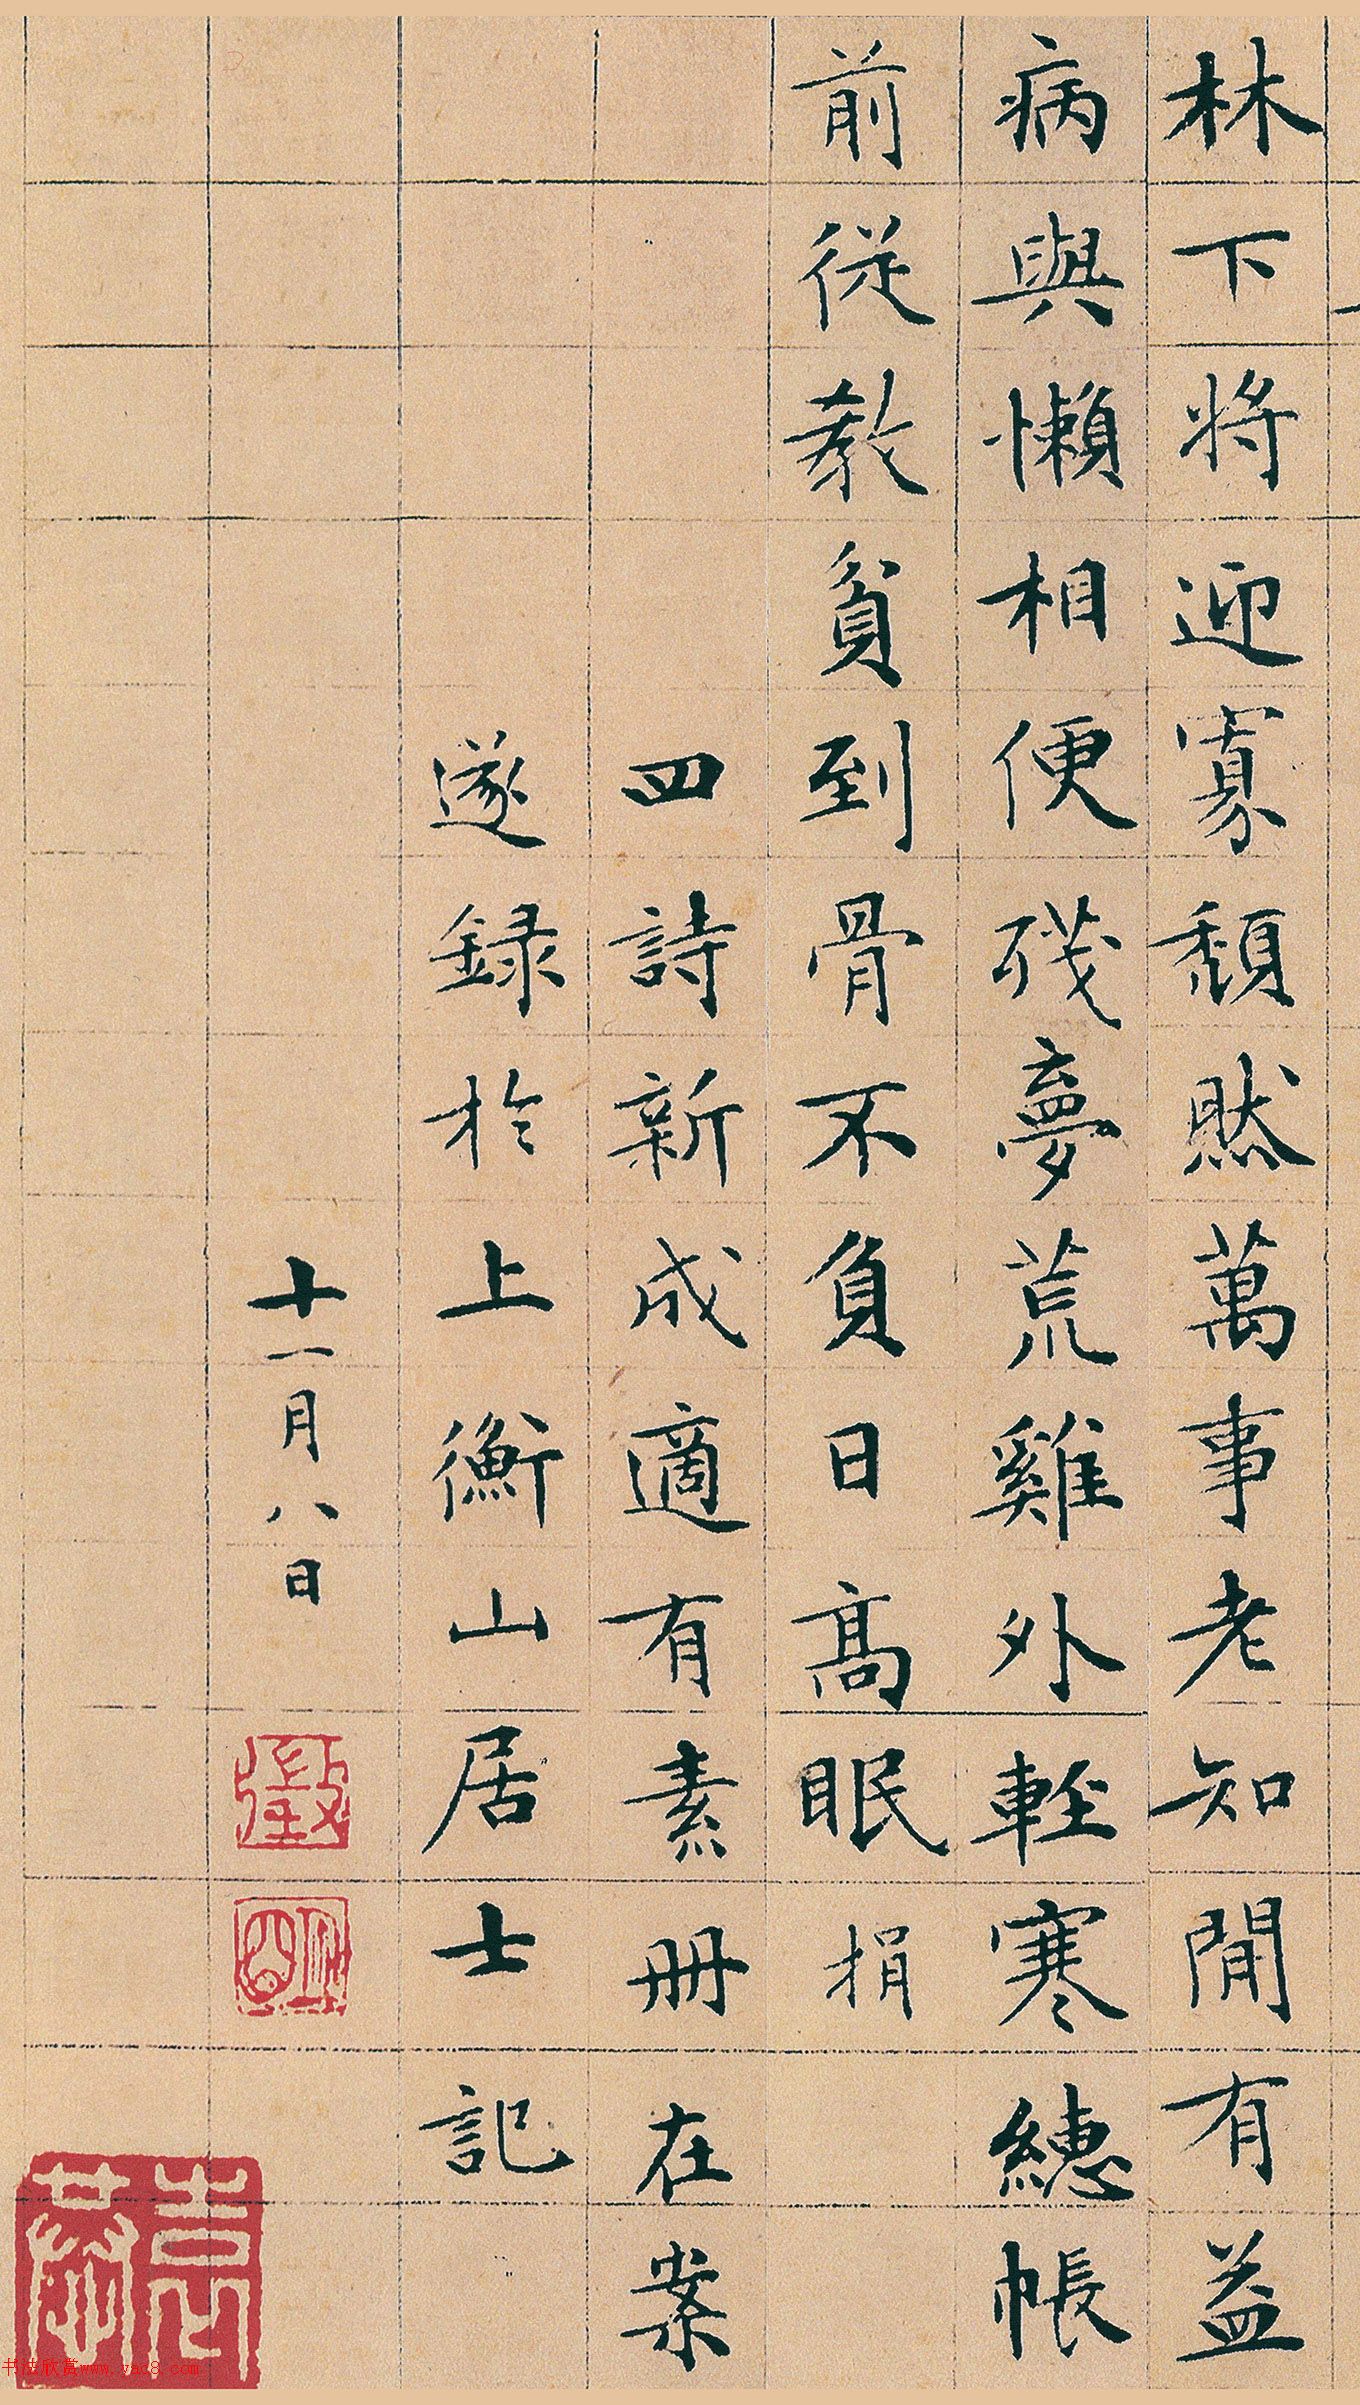 林下將迎寡頹然萬事老知閒有益
病與懶相便殘夢荒雞外輕寒繐帳
前從教貧到骨不負日高眠 捐
四詩新成適有素冊在案
遂録於上衡山居士記
十一月八日
徵
明
书法欣赏www.yac8.com